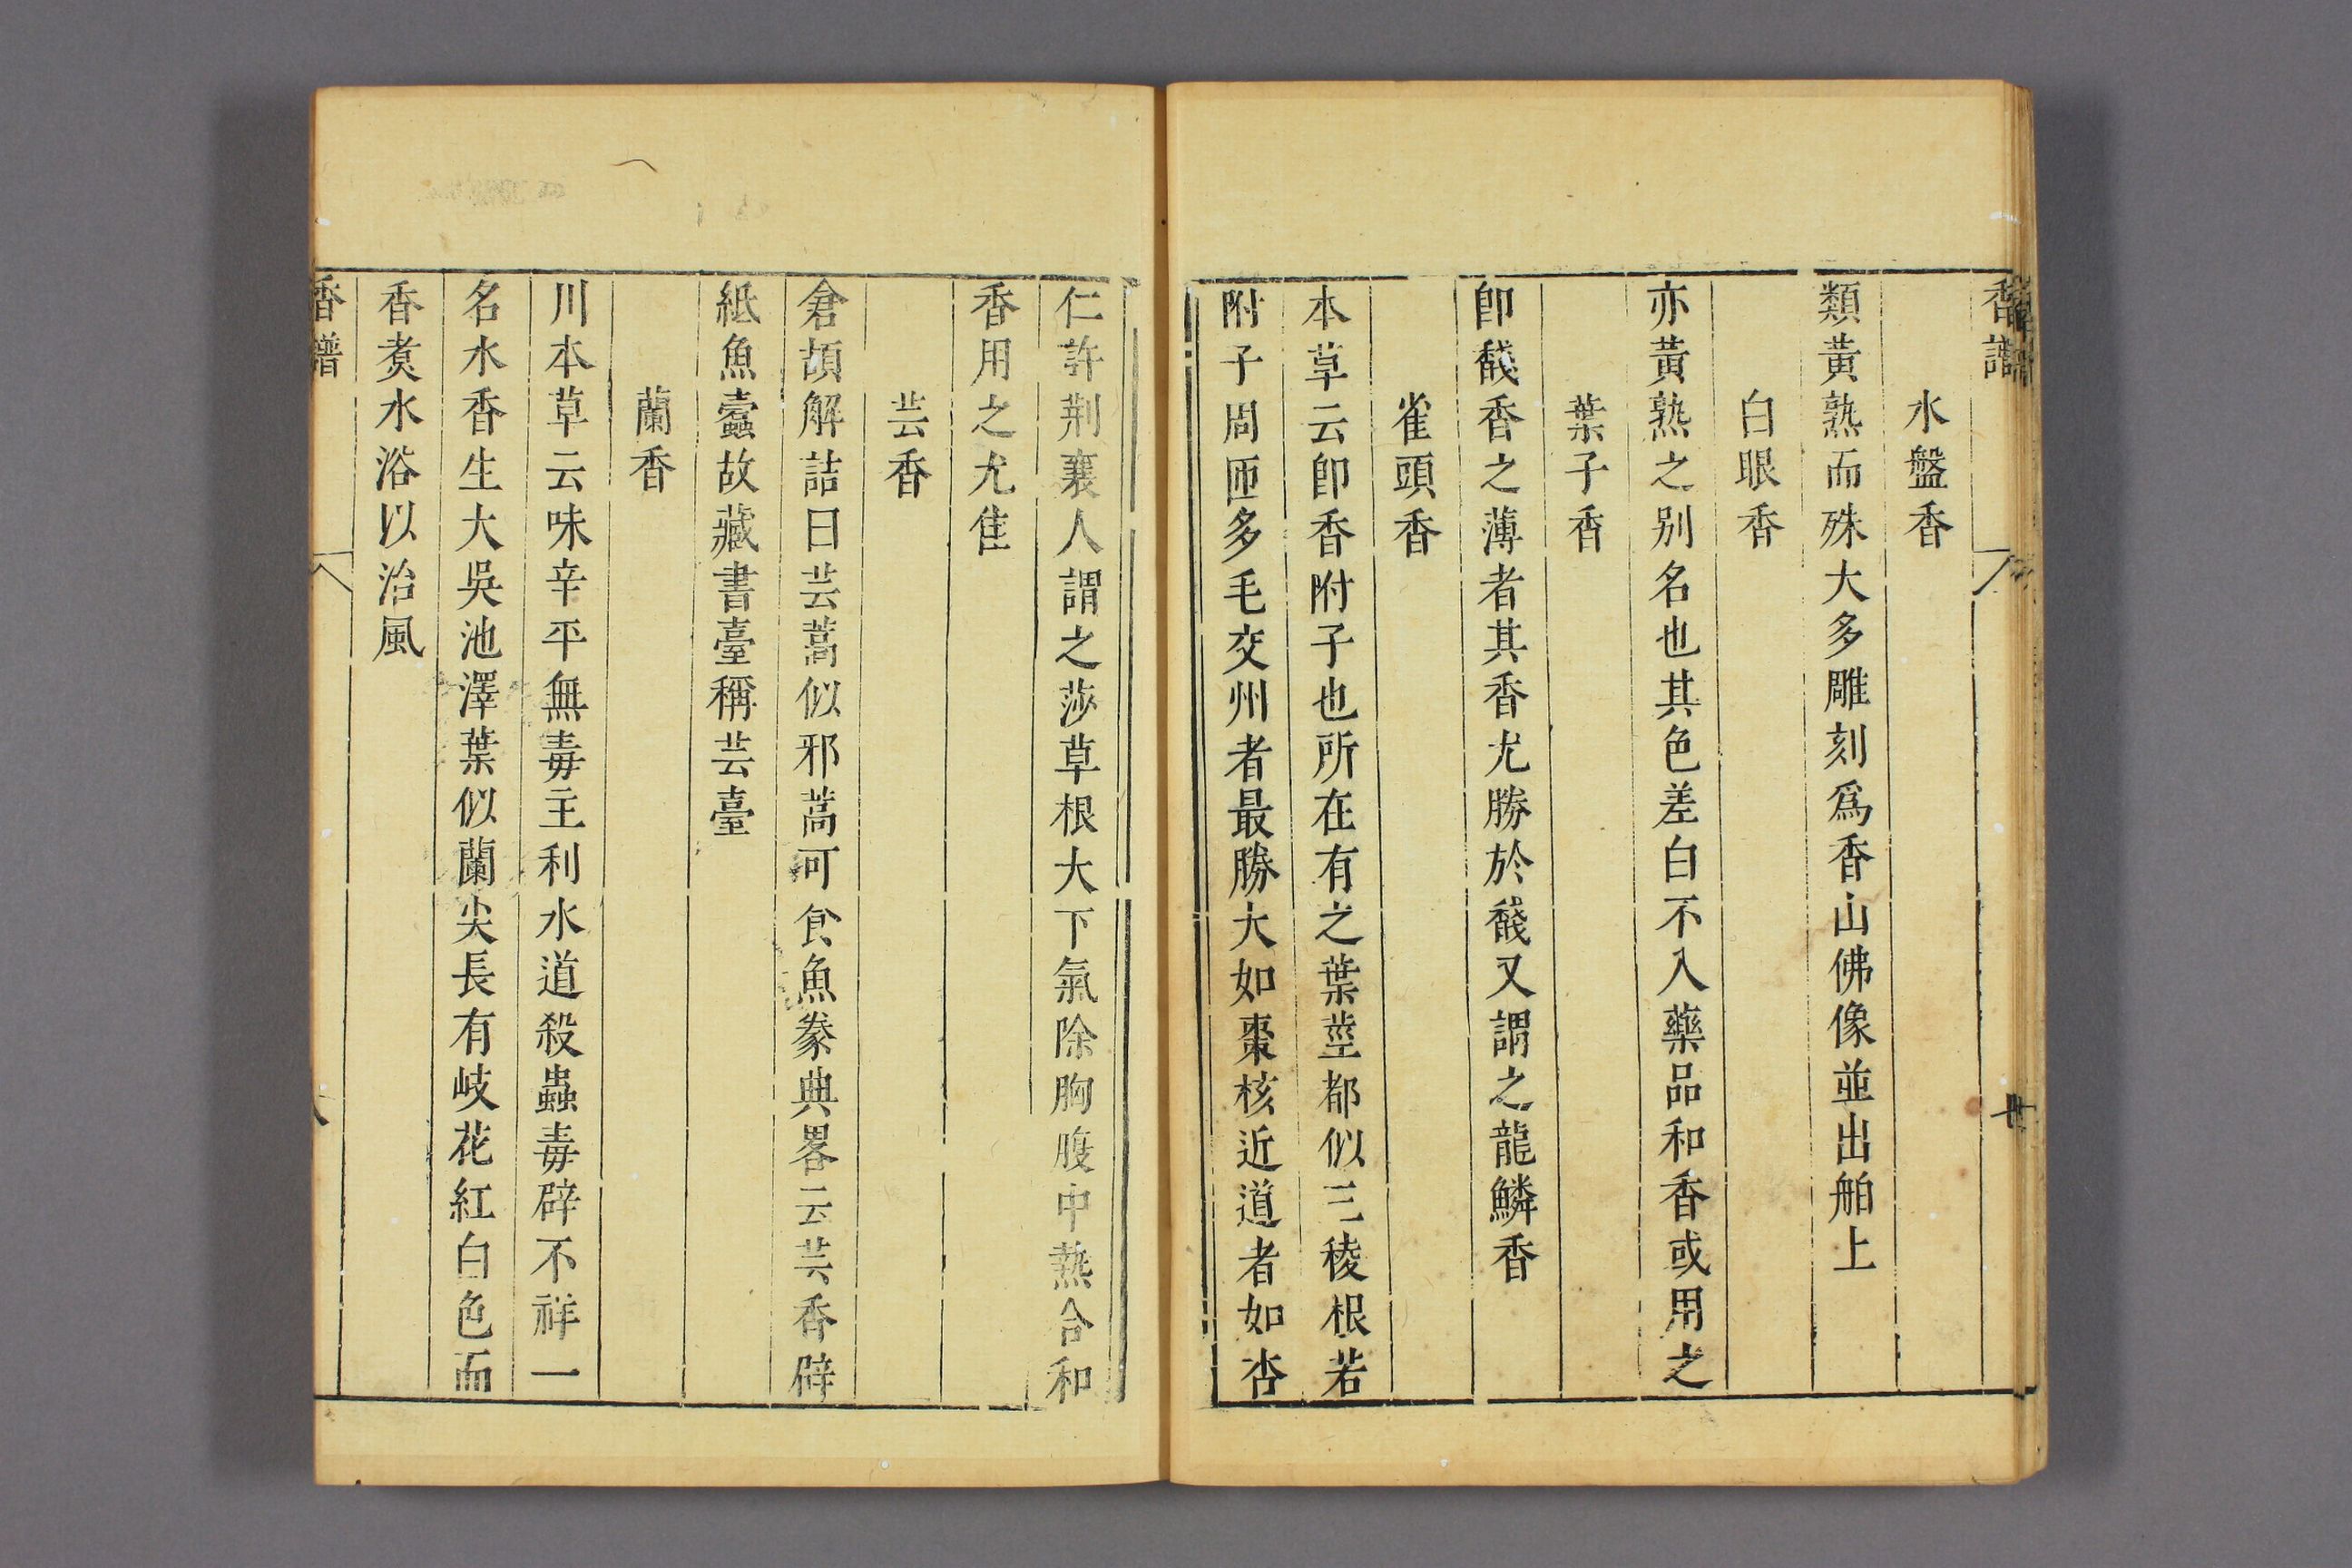 香譜
水盤香
類黃熟而殊大多雕刻爲香山佛像並出舶上
白眼香
亦黃熟之別名也其色差白不入藥品和香或用之
葉子香
卽馢香之薄者其香尤勝於馢又謂之龍鱗香
雀頭香
本草云卽香附子也所在有之葉莖都似三稜根若
附子周匝多毛交州者最勝大如棗核近道者如杏
仁許荆襄人謂之莎草根大下氣除胸腹中熱合和
香用之尤隹
芸香
倉頡解詁曰芸蒿似邪蒿可食魚豢典畧云芸香辟
紙魚蠹故藏書臺稱芸臺
蘭香
川本草云味辛平無毒主利水道殺蟲毒辟不祥一
名水香生大吳池澤葉似蘭尖長有岐花紅白色而
香煑水浴以治風
香譜